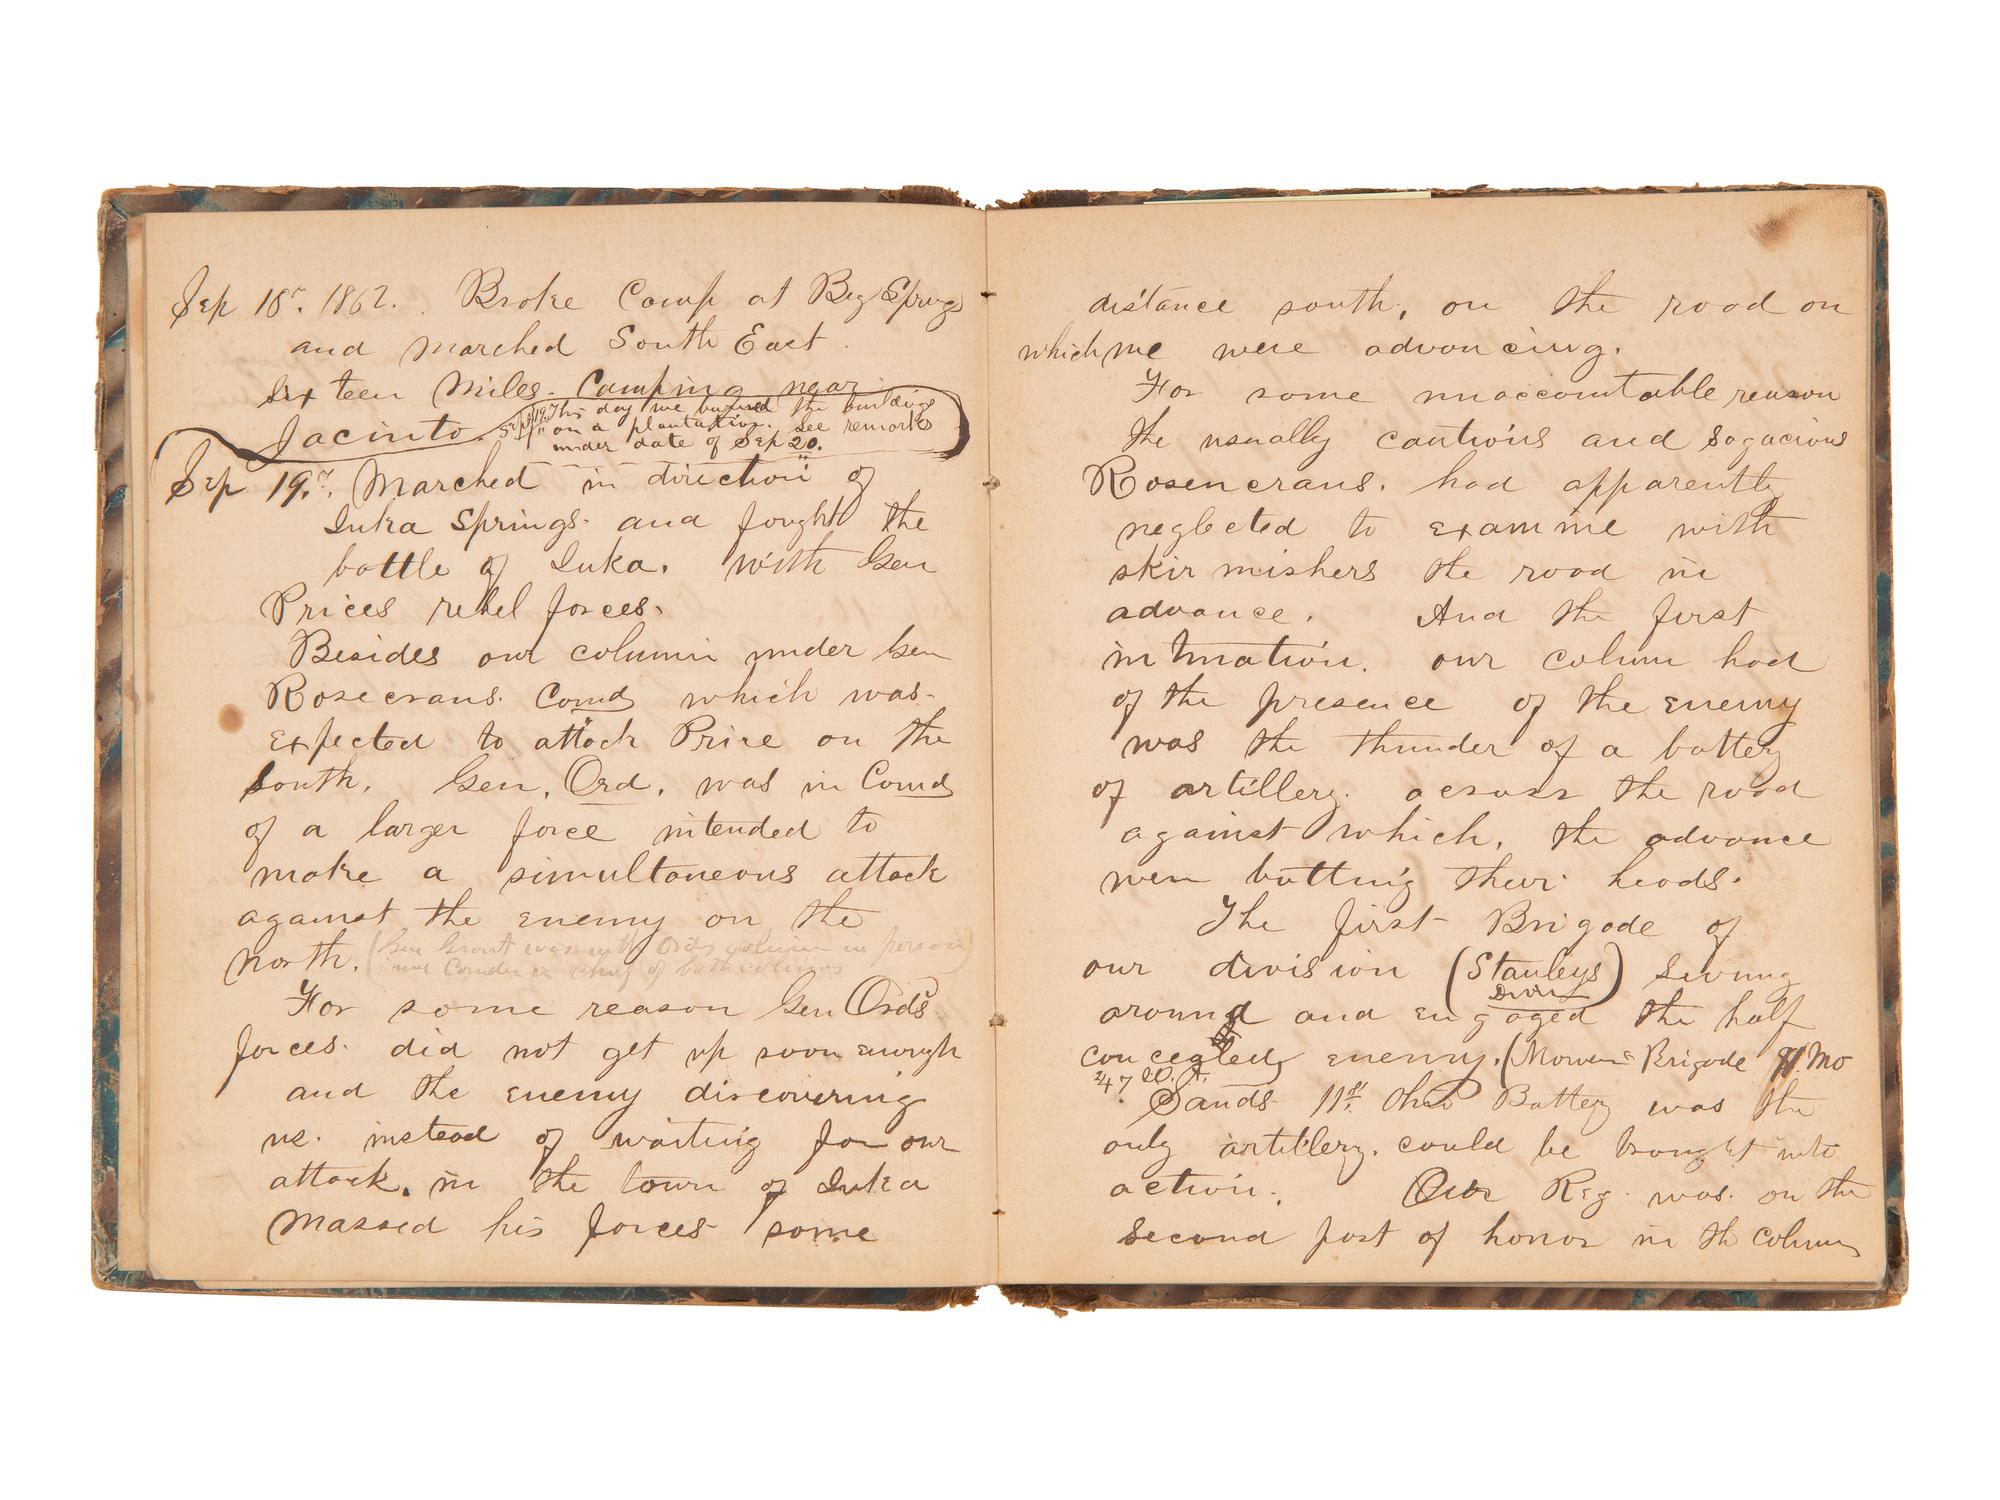 Sep 18th. 1862. Broke Camp at Big Springs
and marched South East.
Sixteen Miles. Camping near
Jacinto.
Sept 19th This day we burned the buildings
on a plantation. See remarks
under date of Sep 20.
Sep 19th. Marched in direction of
Iuka Springs. and fought the
battle of Iuka. with Gen
Prices rebel forces.
Besides our column under Gen
Rosecrans. Comd which was
expected to attack Price on the
South. Gen, Ord. was in Comd
of a larger force intended to
make a simultaneous attack
against the enemy on the
north. (Gen Grant was with Ords column in person
and Comder in chief of both columns)
For some reason Gen Ords
forces. did not get up soon enough
and the enemy discovering
us. instead of waiting for our
attack. in the town of Iuka
massed his forces some
distance south, on the road on
which we were advancing.
For some unaccountable reason
the usually cautious and sagacious
Rosencrans. had apparently
neglected to examine with
skirmishers the road in
advance. And the first
intimation. our colum had
of the presence of the enemy
was the thunder of a battery
of artillery. across the road
against which, the advance
were butting their heads.
The first Brigade of
our division (Stanleys Divin) swung
around and engaged the half
concealed enemy. (Mowers Brigade 11 Mo
47
Sands 11th Ohio Battery was the
only artillery. could be brought into
action. Our Reg. was. on the
second post of honor in th column